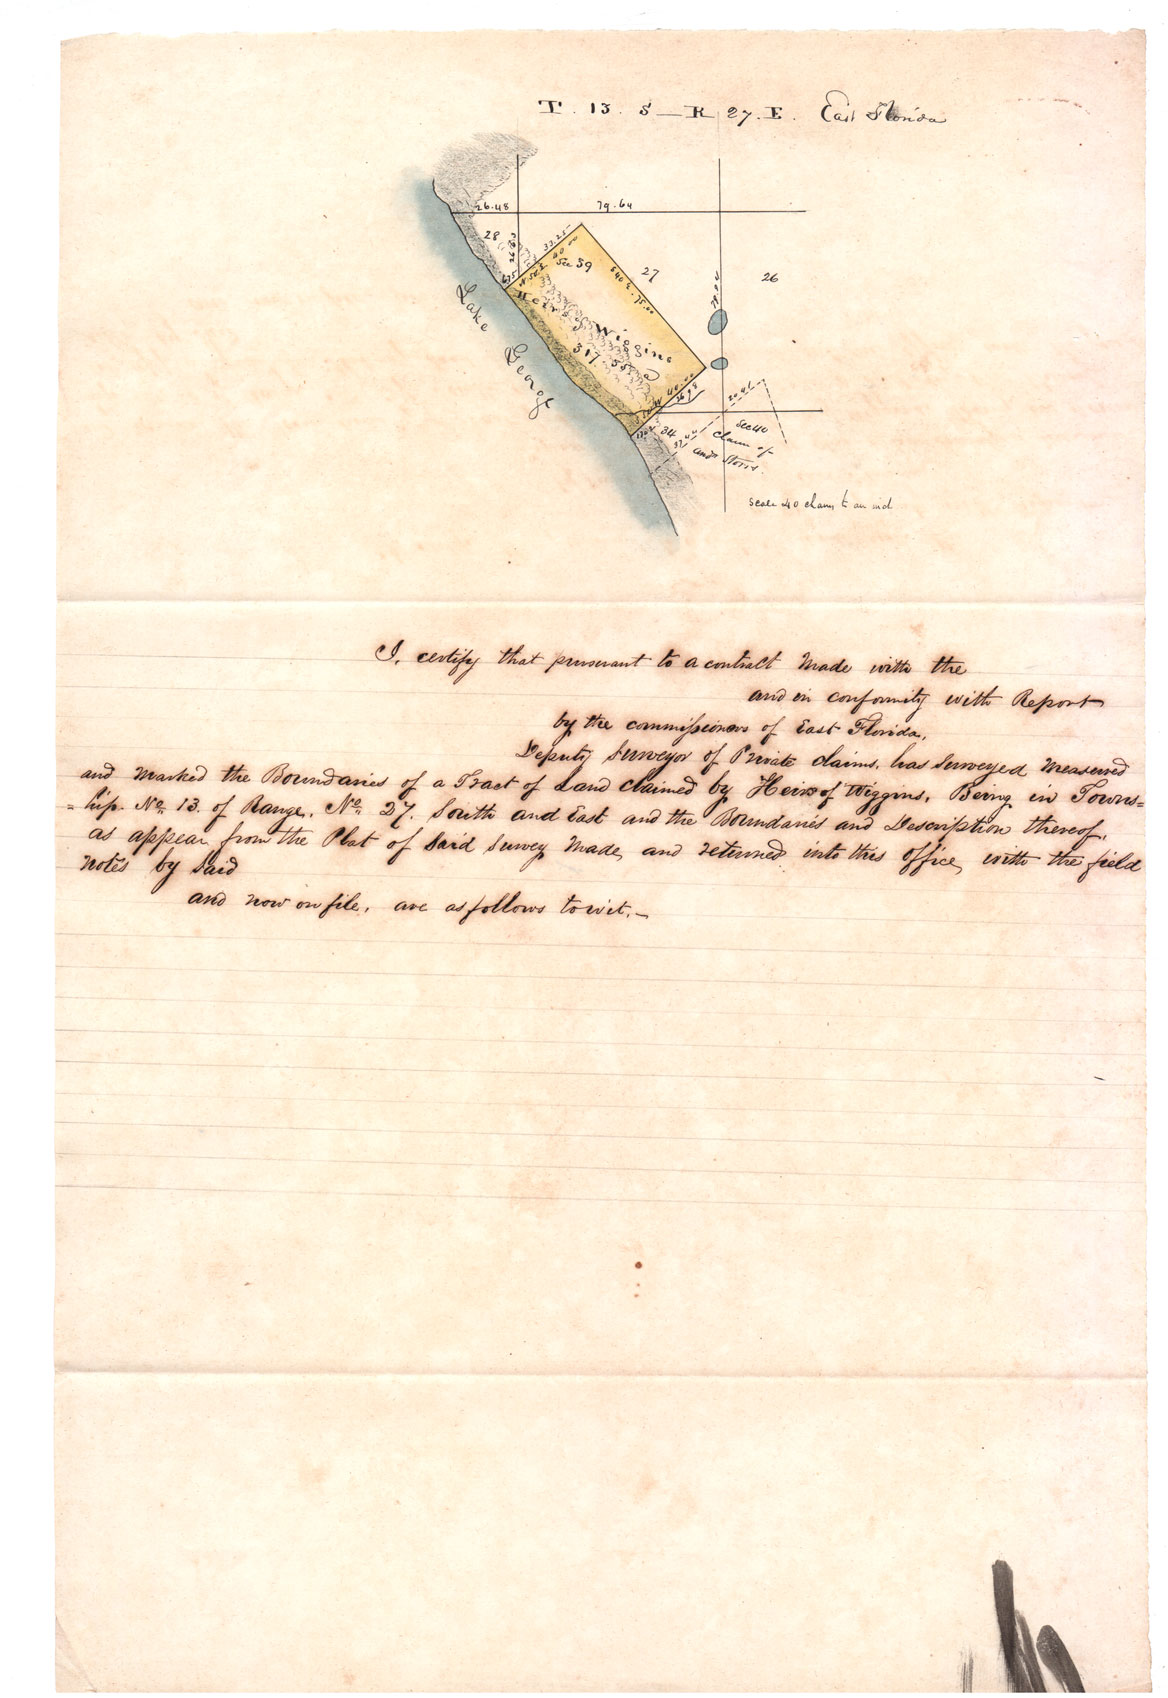 T. 13. S — R 27. E. East Florida
26.48
79.64
28
26.63
33.25
40.00
Sec 39
27
26
Heirs of Wiggins
317.55 a
Lake
George
40.00
34
20.41
Sec 40
Claim of
Andw Storrs.
Scale 40 chains to an inch
I, certify that pursuant to a contract Made with the
and in conformity with Report
by the commissioners of East Florida,
Deputy Surveyor of Private claims, has Surveyed Measured
and Marked the Boundaries of a Tract of Land claimed by Heirs of Wiggins, Being in Towns=
=hip. No. 13. of Range, No. 27. South and East and the Boundaries and Description thereof,
as appear from the Plat of Said Survey Made, and returned into this office, with the field
notes by Said
and now on file, are as follows to wit,—